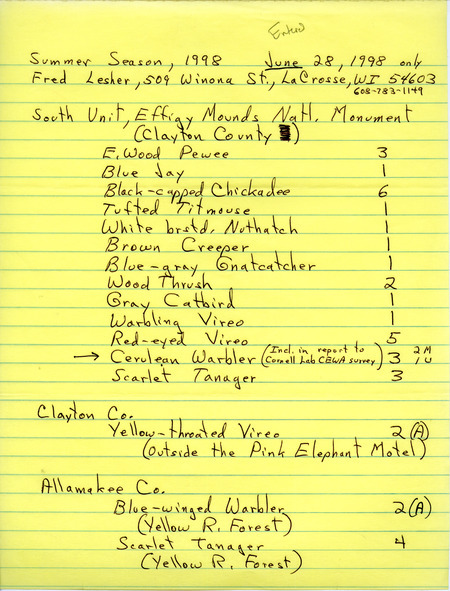 Entered
Summer Season, 1998 June 28, 1998 only
Fred Lesher, 509 Winona St., LaCrosse, WI 54603
608-783-1149
South Unit, Effigy Mounds Natl. Monument
(Clayton County)
E. Wood Pewee 3
Blue Jay 1
Black-capped Chickadee 6
Tufted Titmouse 1
White brstd. Nuthatch 1
Brown Creeper 1
Blue-gray Gnatcatcher 1
Wood Thrush 2
Gray Catbird 1
Warbling Vireo 1
Red-eyed Vireo 5
→ Cerulean Warbler (Incl. in report to Cornell Lab CEWA survey) 3 2M 1U
Scarlet Tanager 3
Clayton Co.
Yellow-throated Vireo 2 (A)
(outside the Pink Elephant Motel)
Allamakee Co.
Blue-winged Warbler 2 (A)
(Yellow R. Forest)
Scarlet Tanager 4
(Yellow R. Forest)